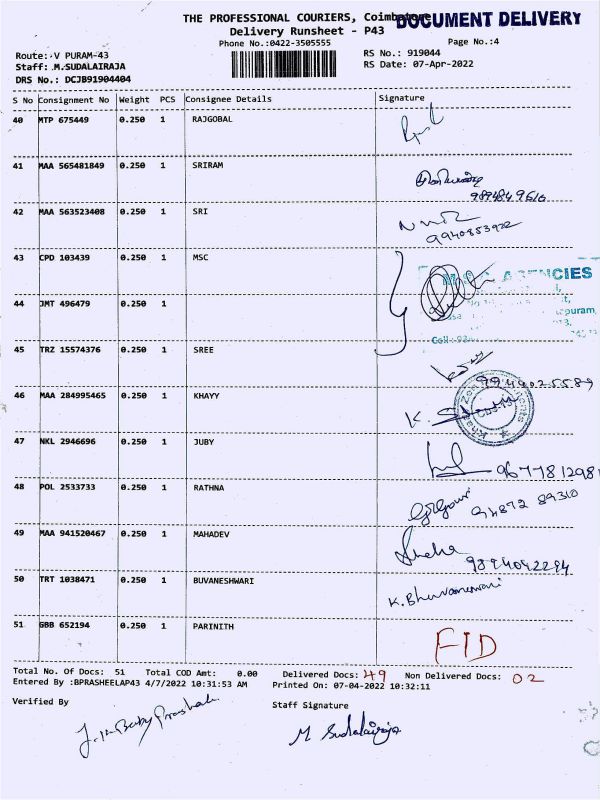 THE PROFESSIONAL COURIERS, Coimbatore
DOCUMENT DELIVERY
Delivery Runsheet - P43
Phone No.:0422-3505555
Page No.:4
Route: V PURAM-43
RS No.: 919044
Staff: M.SUDALAIRAJA
RS Date: 07-Apr-2022
DRS No.: DCJB91904404
S No Consignment No Weight PCS Consignee Details Signature
40 MTP 675449 0.250 1 RAJGOBAL
41 MAA 565481849 0.250 1 SRIRAM
42 MAA 563523408 0.250 1 SRI
9940853922
43 CPD 103439 0.250 1 MSC
AGENCIES
44 JMT 496479 0.250 1
45 TRZ 15574376 0.250 1 SREE
9944025589
46 MAA 284995465 0.250 1 KHAYY
47 NKL 2946696 0.250 1 JUBY
9677812981
48 POL 2533733 0.250 1 RATHNA
94872 89310
49 MAA 941520467 0.250 1 MAHADEV
9894042294
50 TRT 1038471 0.250 1 BUVANESHWARI
K. Bhuvaneswari
51 GBB 652194 0.250 1 PARINITH
FID
Total No. Of Docs: 51 Total COD Amt: 0.00 Delivered Docs: 49 Non Delivered Docs: 02
Entered By :BPRASHEELAP43 4/7/2022 10:31:53 AM Printed On: 07-04-2022 10:32:11
Verified By
Staff Signature
M Sudalairaja